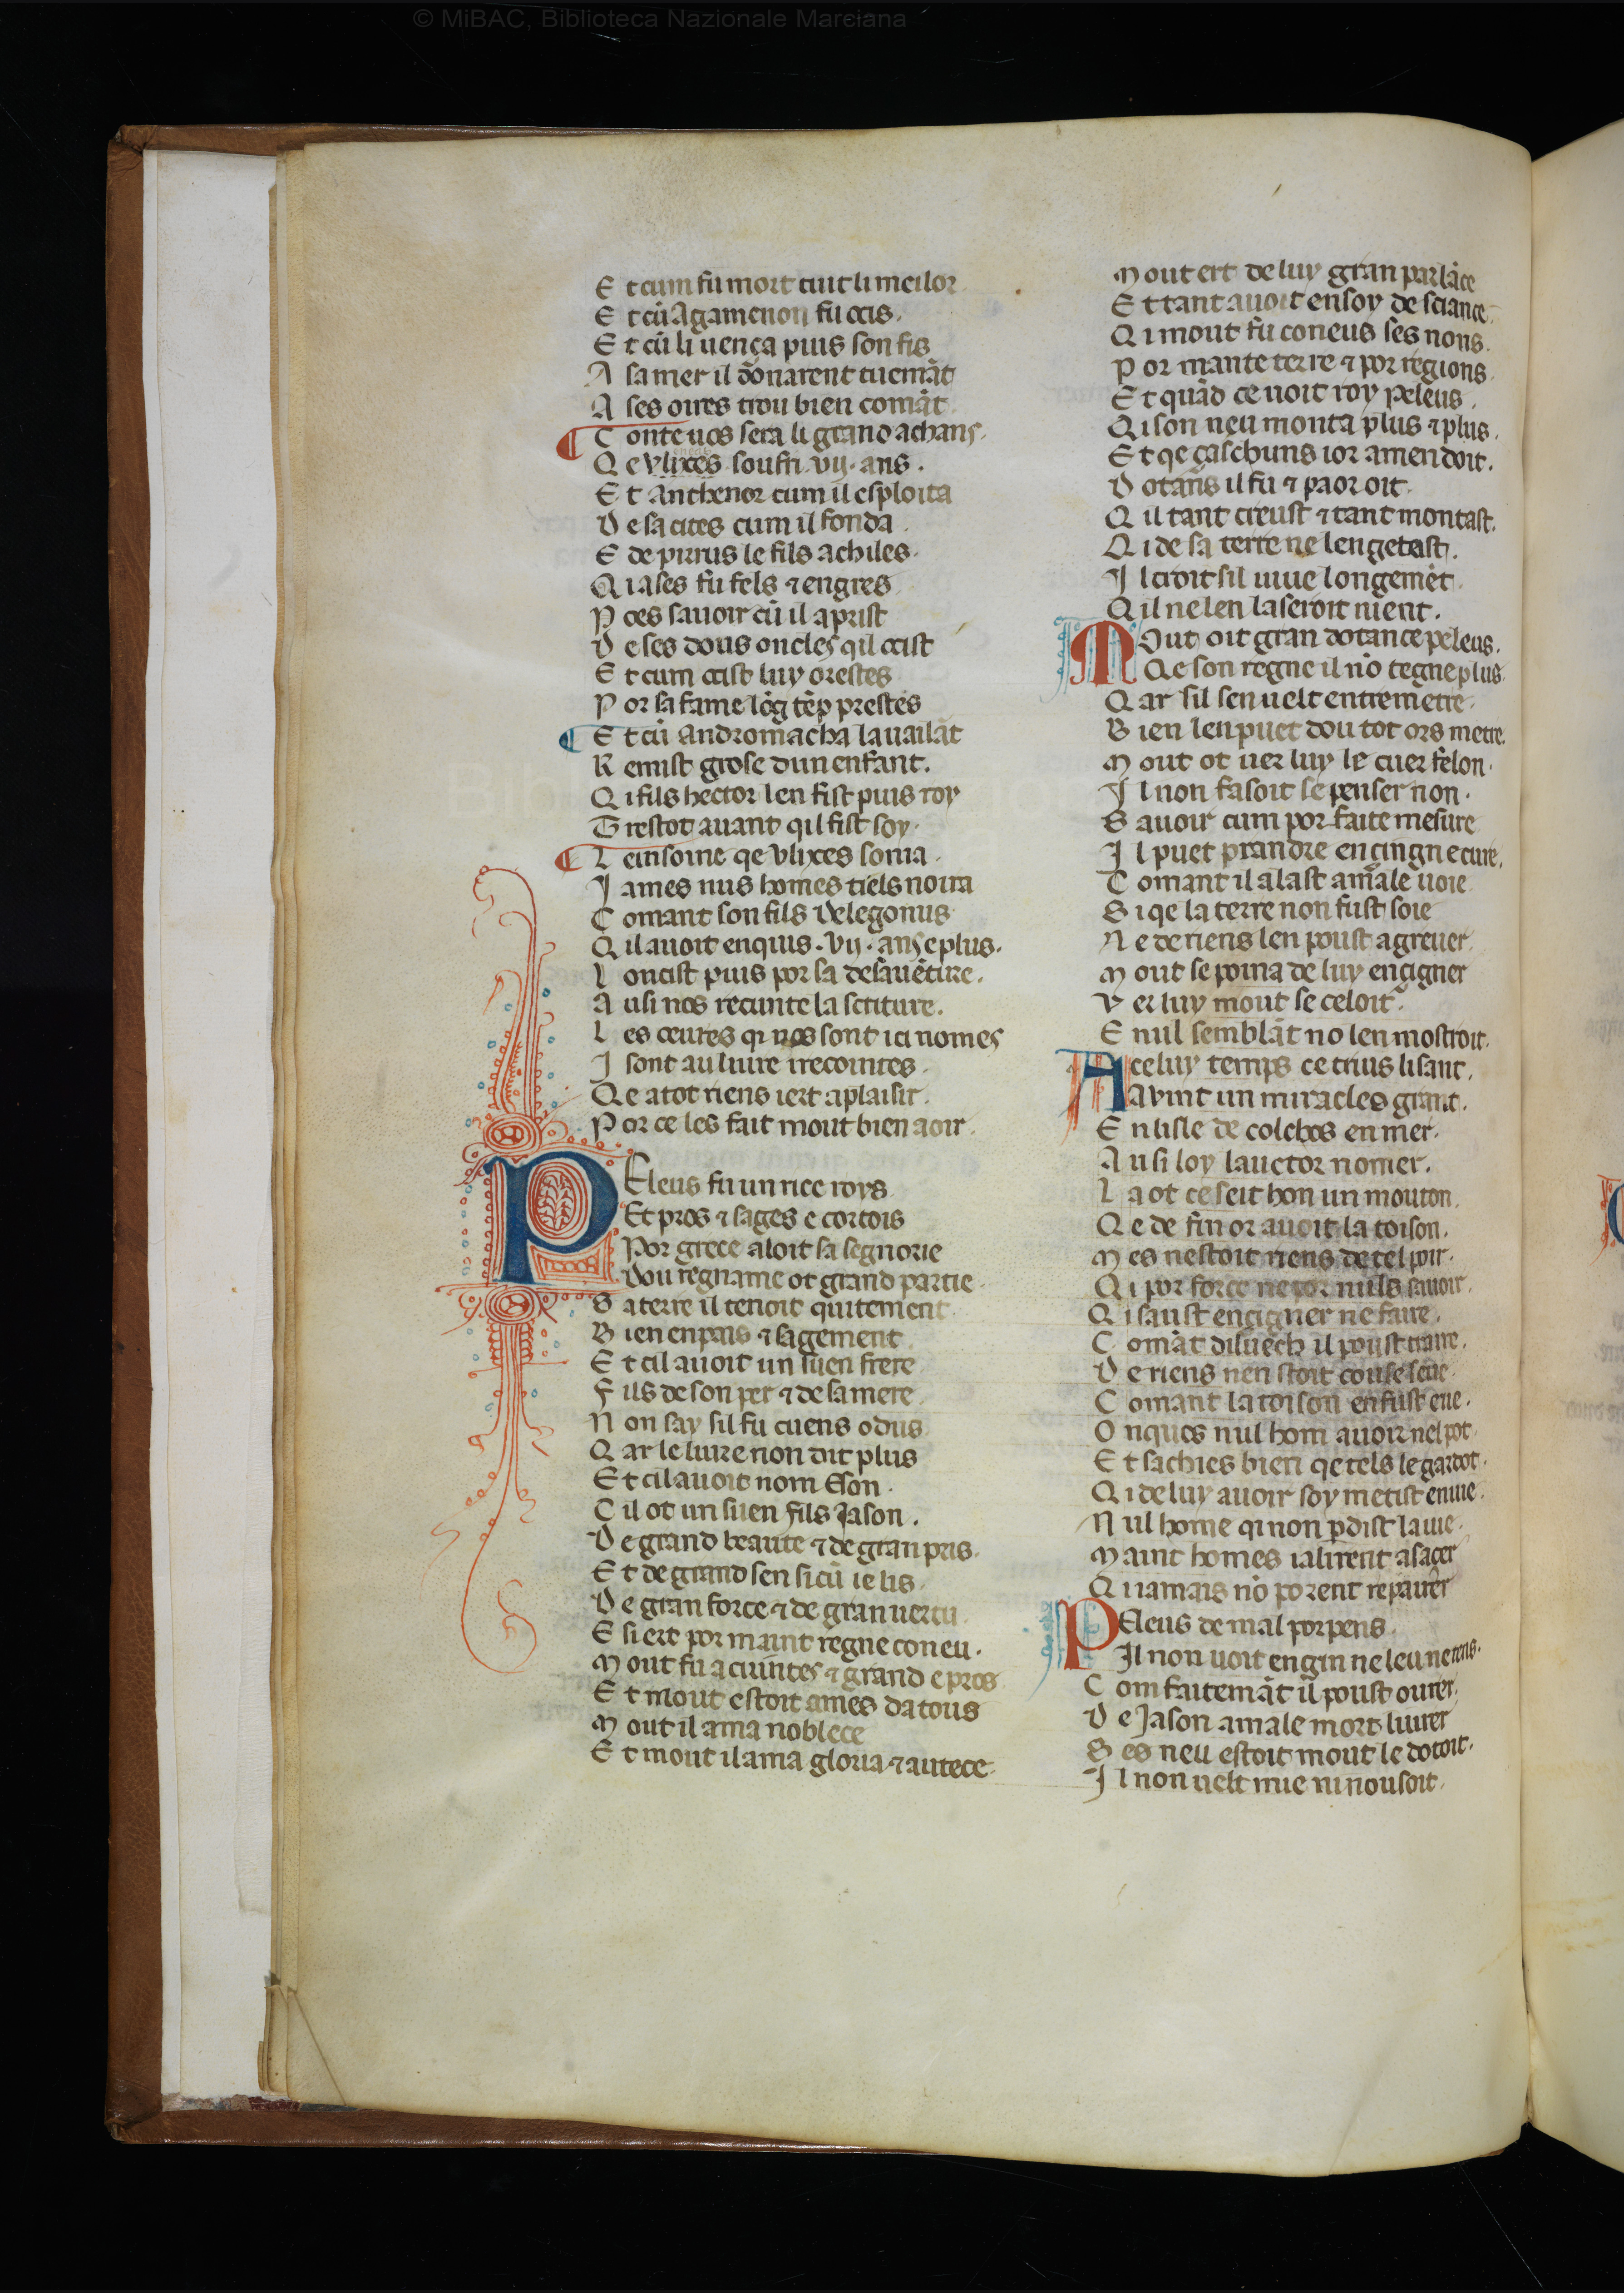 © MiBAC, Biblioteca Nazionale Marciana
E t cum fu mort tuit li meilor
E t cū Agamenon fu ocis.
E t cū li uença puis son fis
A sa mer il donarent tuemāt
A ses oires trou bien comāt
C onte uos sera li grand achans.
Q e vlixes soufri .vij. ans.
E t Anthenor cum il esploita
D e sa cites cum il fonda.
E de pirrus le fils achiles.
Q i ases fu fels ⁊ engres
P ces sauoir cū il aprist
D e ses dous oncles qil ocist
E t cum ocist luy orestes
P or sa fame lōg tēp prestes
E t cū Andromacha la uailāt
R emist grose dun enfant.
Q i fils hector len fist puis roy
T restot auant qil fist soy.
L einsoine qe vlixes sonia.
J ames nus homes tiels noira
C omant son fils Delegonus
Q il auoit enquis .vij. ans e plus.
L oncist puis por sa desauēture.
A usi nos recunte la scriture.
L es oeures qi nos sont ici nomes
J sont au liure irecointes.
Q e a tot riens iert a plaisir.
P or ce les fait mout bien aoir.
PEleus fu un rice roys
Et pros ⁊ sages e cortois
Por grece aloit sa segnorie
Dou regname ot grand partie
S a terre il tenoit quitement
B ien en pais ⁊ sagement
E t cil auoit un suen frere
F ils de son per ⁊ de sa mere
N on say sil fu cuens o dus
Q ar le liure non dit plus
E t cil auoit nom Eson.
C il ot un suen fils Jason.
D e grand beaute ⁊ de gran pris.
E t de grand sen si cū ie lis
D e gran force ⁊ de gran uertu
E si ert por maint regne coneu.
M out fu acuintes ⁊ grand e pros
E t mout estoit ames da tous
M out il ama noblece
E t mout il ama gloria ⁊ autece
M out ert de luy gran parlāce
E t tant auoit en soy de sciance.
Q i mout fu coneus ses nons.
P or mante terre ⁊ por regions.
E t quād ce uoit roy Peleus.
Q i son neu monta plus ⁊ plus.
E t qe çaschuns ior amendoit.
D otans il fu ⁊ paor oit.
Q il tant creust ⁊ tant montast.
Q i de sa terre ne len getast.
J l croit sil uiue longemēt
Q il ne len laseroit nient.
MOut oit gran dotance peleus.
Qe son regne il nō tegne plus
Q ar sil sen uelt entremetre
B ien len puet dou tot ors metre.
M out ot uer luy le cuer felon.
J l non fasoit se penser non.
S auoir cum por faite mesure
J l puet prandre engingne cure.
C omant il alast a male uoie
S i qe la terre non fust soie
N e de riens len poust agreuer
M out se poina de luy engigner
V er luy mout se celoit.
E nul semblāt no len mostroit.
A celuy temps ce truis lisant.
Auint un miracles grant.
E n lisle de colchos en mer.
A usi loy lauctor nomer.
L a ot ce seit hon un mouton
Q e de fin or auoit la toison.
M es nestoit riens de tel poir.
Q i por force ne por nuls sauoir.
Q i saust engigner ne faire.
C omāt diluech il poust traire.
D e riens nen stoit couse seue
C omant la toison en fust eue.
O nques nul hom auoir nel pot
E t sachies bien qe tels le gardot.
Q i de luy auoir soy metist en uie.
N ul home qi non pdist la uie.
M aint homes i alirent a saçer
Q i iamais nō porent repairer
PEleus de mal porpens
Il non uoit engin ne leu ne tens.
C om faitemāt il poust ourer.
D e Jason a male mort liurer
S es neu estoit mout le dotoit.
J l non uelt mie ni nousoit.